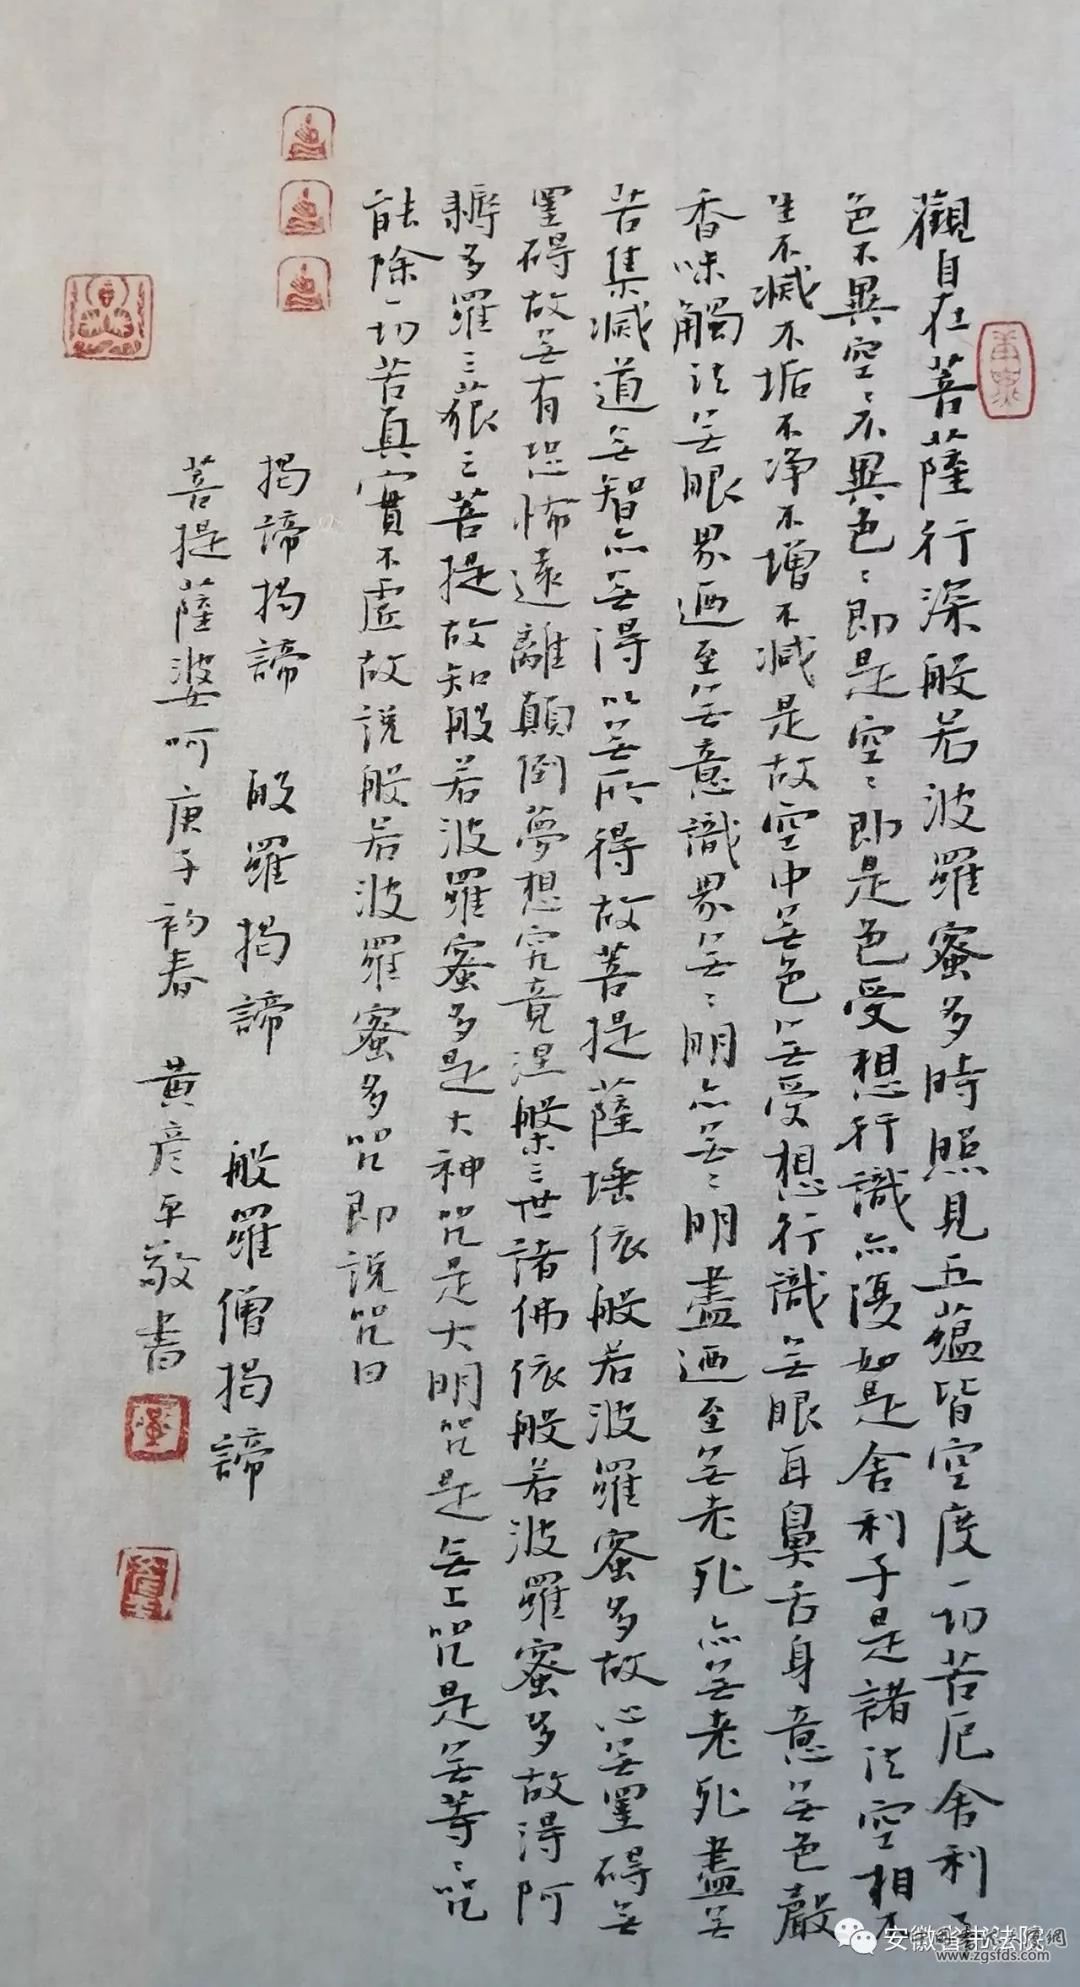 觀自在菩薩行深般若波羅蜜多時照見五蘊皆空度一切苦厄舍利子
色不異空〻不異色〻即是空〻即是色受想行識亦復如是舍利子是諸法空相不
生不滅不垢不净不增不減是故空中无色无受想行識无眼耳鼻舌身意无色聲
香味觸法无眼界迺至无意識界无〻明亦无〻明盡迺至无老死亦无老死盡无
苦集滅道无智亦无得以无所得故菩提薩埵依般若波羅蜜多故心无罣碍无
罣碍故无有恐怖遠離顛倒夢想究竟涅槃三世諸佛依般若波羅蜜多故得阿
耨多羅三藐三菩提故知般若波羅蜜多是大神咒是大明咒是无上咒是无等〻咒
能除一切苦真實不虛故說般若波羅蜜多咒即說咒曰
揭諦揭諦 般羅揭諦 般羅僧揭諦
菩提薩婆呵庚子初春 黄彦平敬書
安徽省书法院
www.zgsfds.com